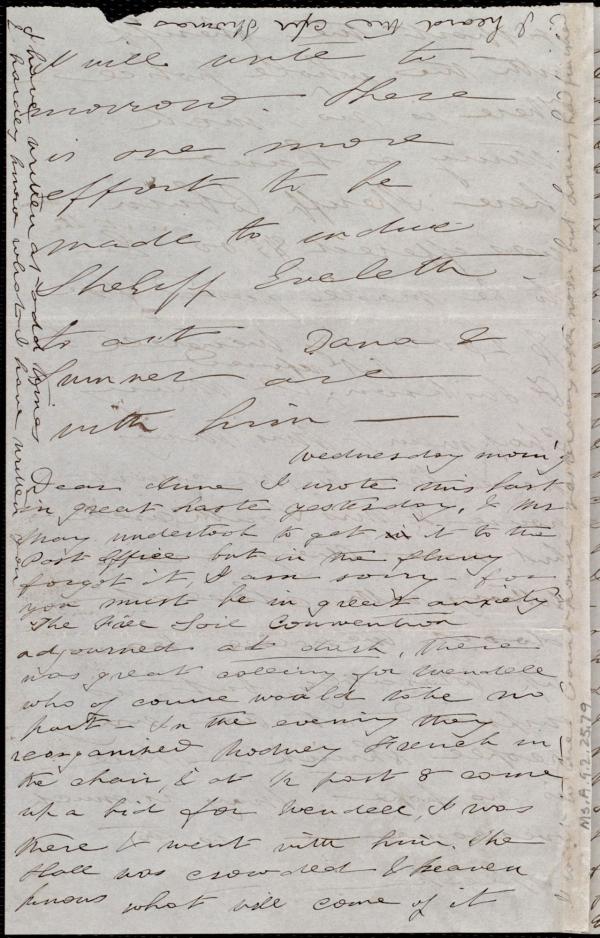 I will write to
morrow. There
is one more
effort to be
made to induce
Sheriff Eveleth
to act Dana &
Sumner are
with him —
Wednesday morn'g
Dear Anne I wrote this last
in great haste yesterday, & Mr
May undertook to get it to the
Post Office but in the flurry
forgot it, I am sorry for
you must be in great anxiety
The Free Soil Convention
adjourned at dusk, there
was great calling for Wendell
who of course would take no
part. In the evening they
reorganised Rodney French in
the chair, & at ½ past 8 came
up a bid for Wendell, I was
there & went with him. The
Hall was crowded & heaven
knows what will come of it
I have written at odd times
& hardly know what I have written
I heard this after Thomas —
Ms.A.9.2.25.79